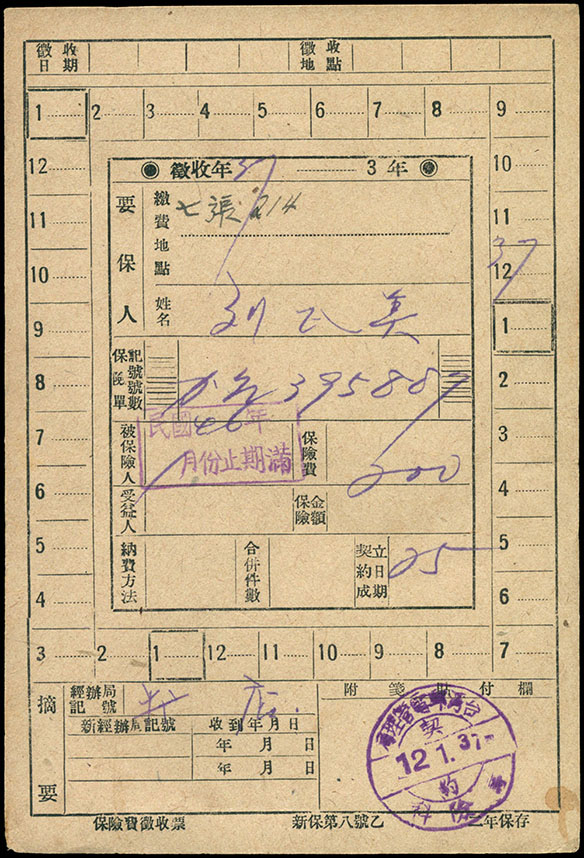 徵收日期
徵收地點
1 2 3 4 5 6 7 8 9
12 10
11 11
10 12 37
9 1
8 2
7 3
6 4
5 5
4 6
3 2 1 12 11 10 9 8 7
徵收年 3年
要保人
繳費地點 七張 214
姓名 刘 美
保險單記號號數 395887
民國46年
月份止期滿
被保險人
保險費 200
受益人
保險金額
納費方法
合併件數
契約成立日期 25
摘要
經辦局記號 店
新經辦局記號 收到年月日
年 月 日
年 月 日
附箋貼付欄
台灣郵電管理局
契約
12.1.37
保險費徵收票 新保第八號乙 二年保存